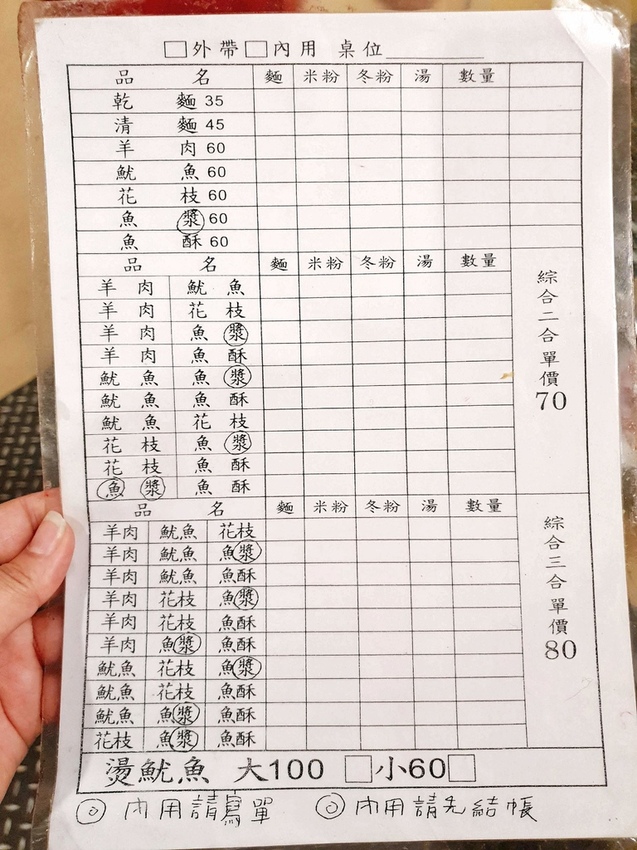 □外帶□內用 桌位________
品名 麵 米粉 冬粉 湯 數量
乾麵 35
清麵 45
羊肉 60
魷魚 60
花枝 60
魚漿 60
魚酥 60
品名 麵 米粉 冬粉 湯 數量
羊肉 魷魚
羊肉 花枝
羊肉 魚漿
羊肉 魚酥
魷魚 魚漿
魷魚 魚酥
魷魚 花枝
花枝 魚漿
花枝 魚酥
魚漿 魚酥
綜合二合單價70
品名 麵 米粉 冬粉 湯 數量
羊肉 魷魚 花枝
羊肉 魷魚 魚漿
羊肉 魷魚 魚酥
羊肉 花枝 魚漿
羊肉 花枝 魚酥
羊肉 魚漿 魚酥
魷魚 花枝 魚漿
魷魚 花枝 魚酥
魷魚 魚漿 魚酥
花枝 魚漿 魚酥
綜合三合單價80
燙魷魚 大100 □小60□
◎ 內用請寫單 ◎ 內用請先結帳